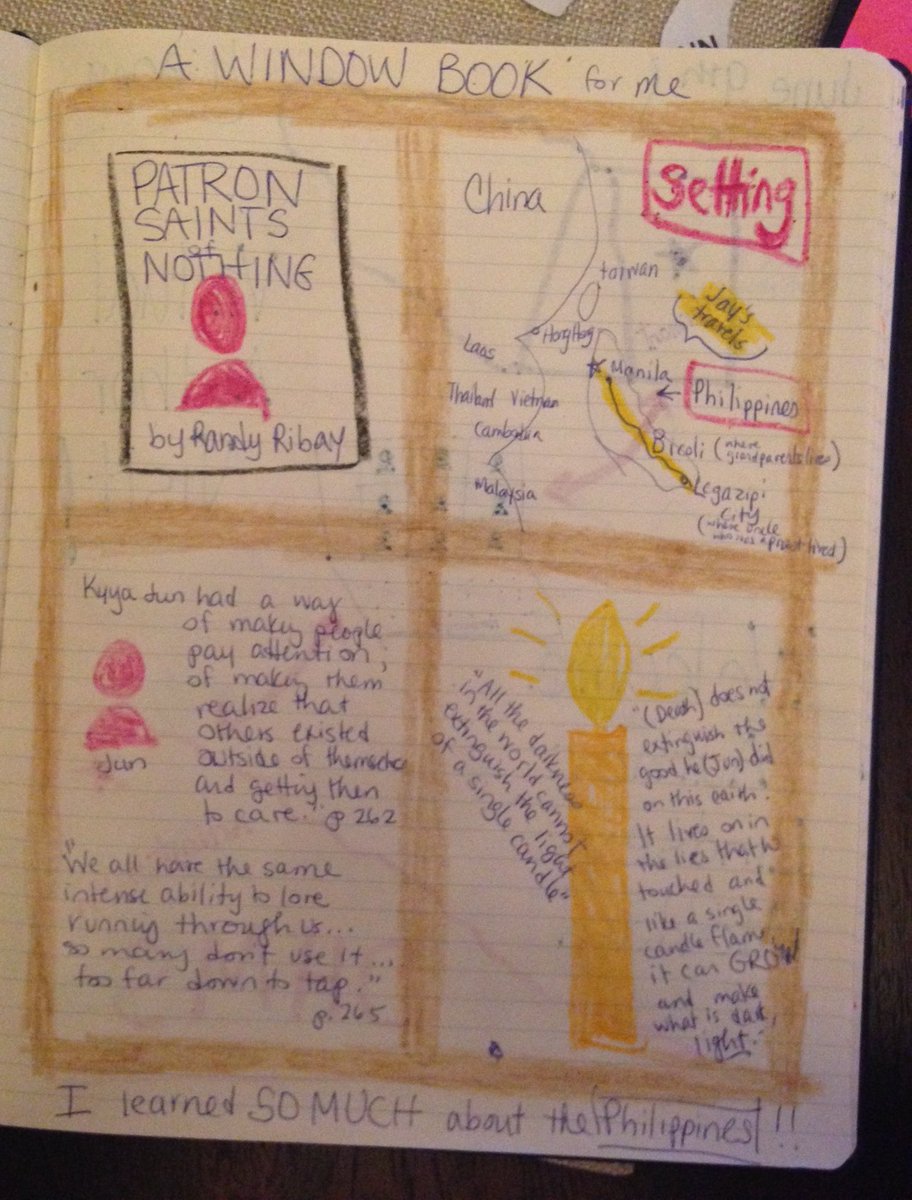 A WINDOW BOOK for me
PATRON
SAINTS
of
NOTHING
by Randy Ribay
Setting
China
Taiwan
Jay's
travels
Hong Kong
Laos
Manila
Philippines
Thailand Vietnam
Cambodia
Bicoli (where
grandparents lived)
Malaysia
Legazpi
City
(where uncle
who was a priest lived)
Kyya Jun had a way
of making people
pay attention,
of making them
realize that
others existed
outside of themselves
and getting them
to care." p 262
Jun
"We all have the same
intense ability to love
running through us...
so many don't use it...
too far down to tap."
p. 265
"All the darkness
in the world cannot
extinguish the light
of a single candle"
"(Death) does not
extinguish the
good he (Jun) did
on this earth".
It lives on in
the lies that he
touched and
like a single
candle flame
it can GROW
and make
what is dark,
light.
I learned SO MUCH about the Philippines!!